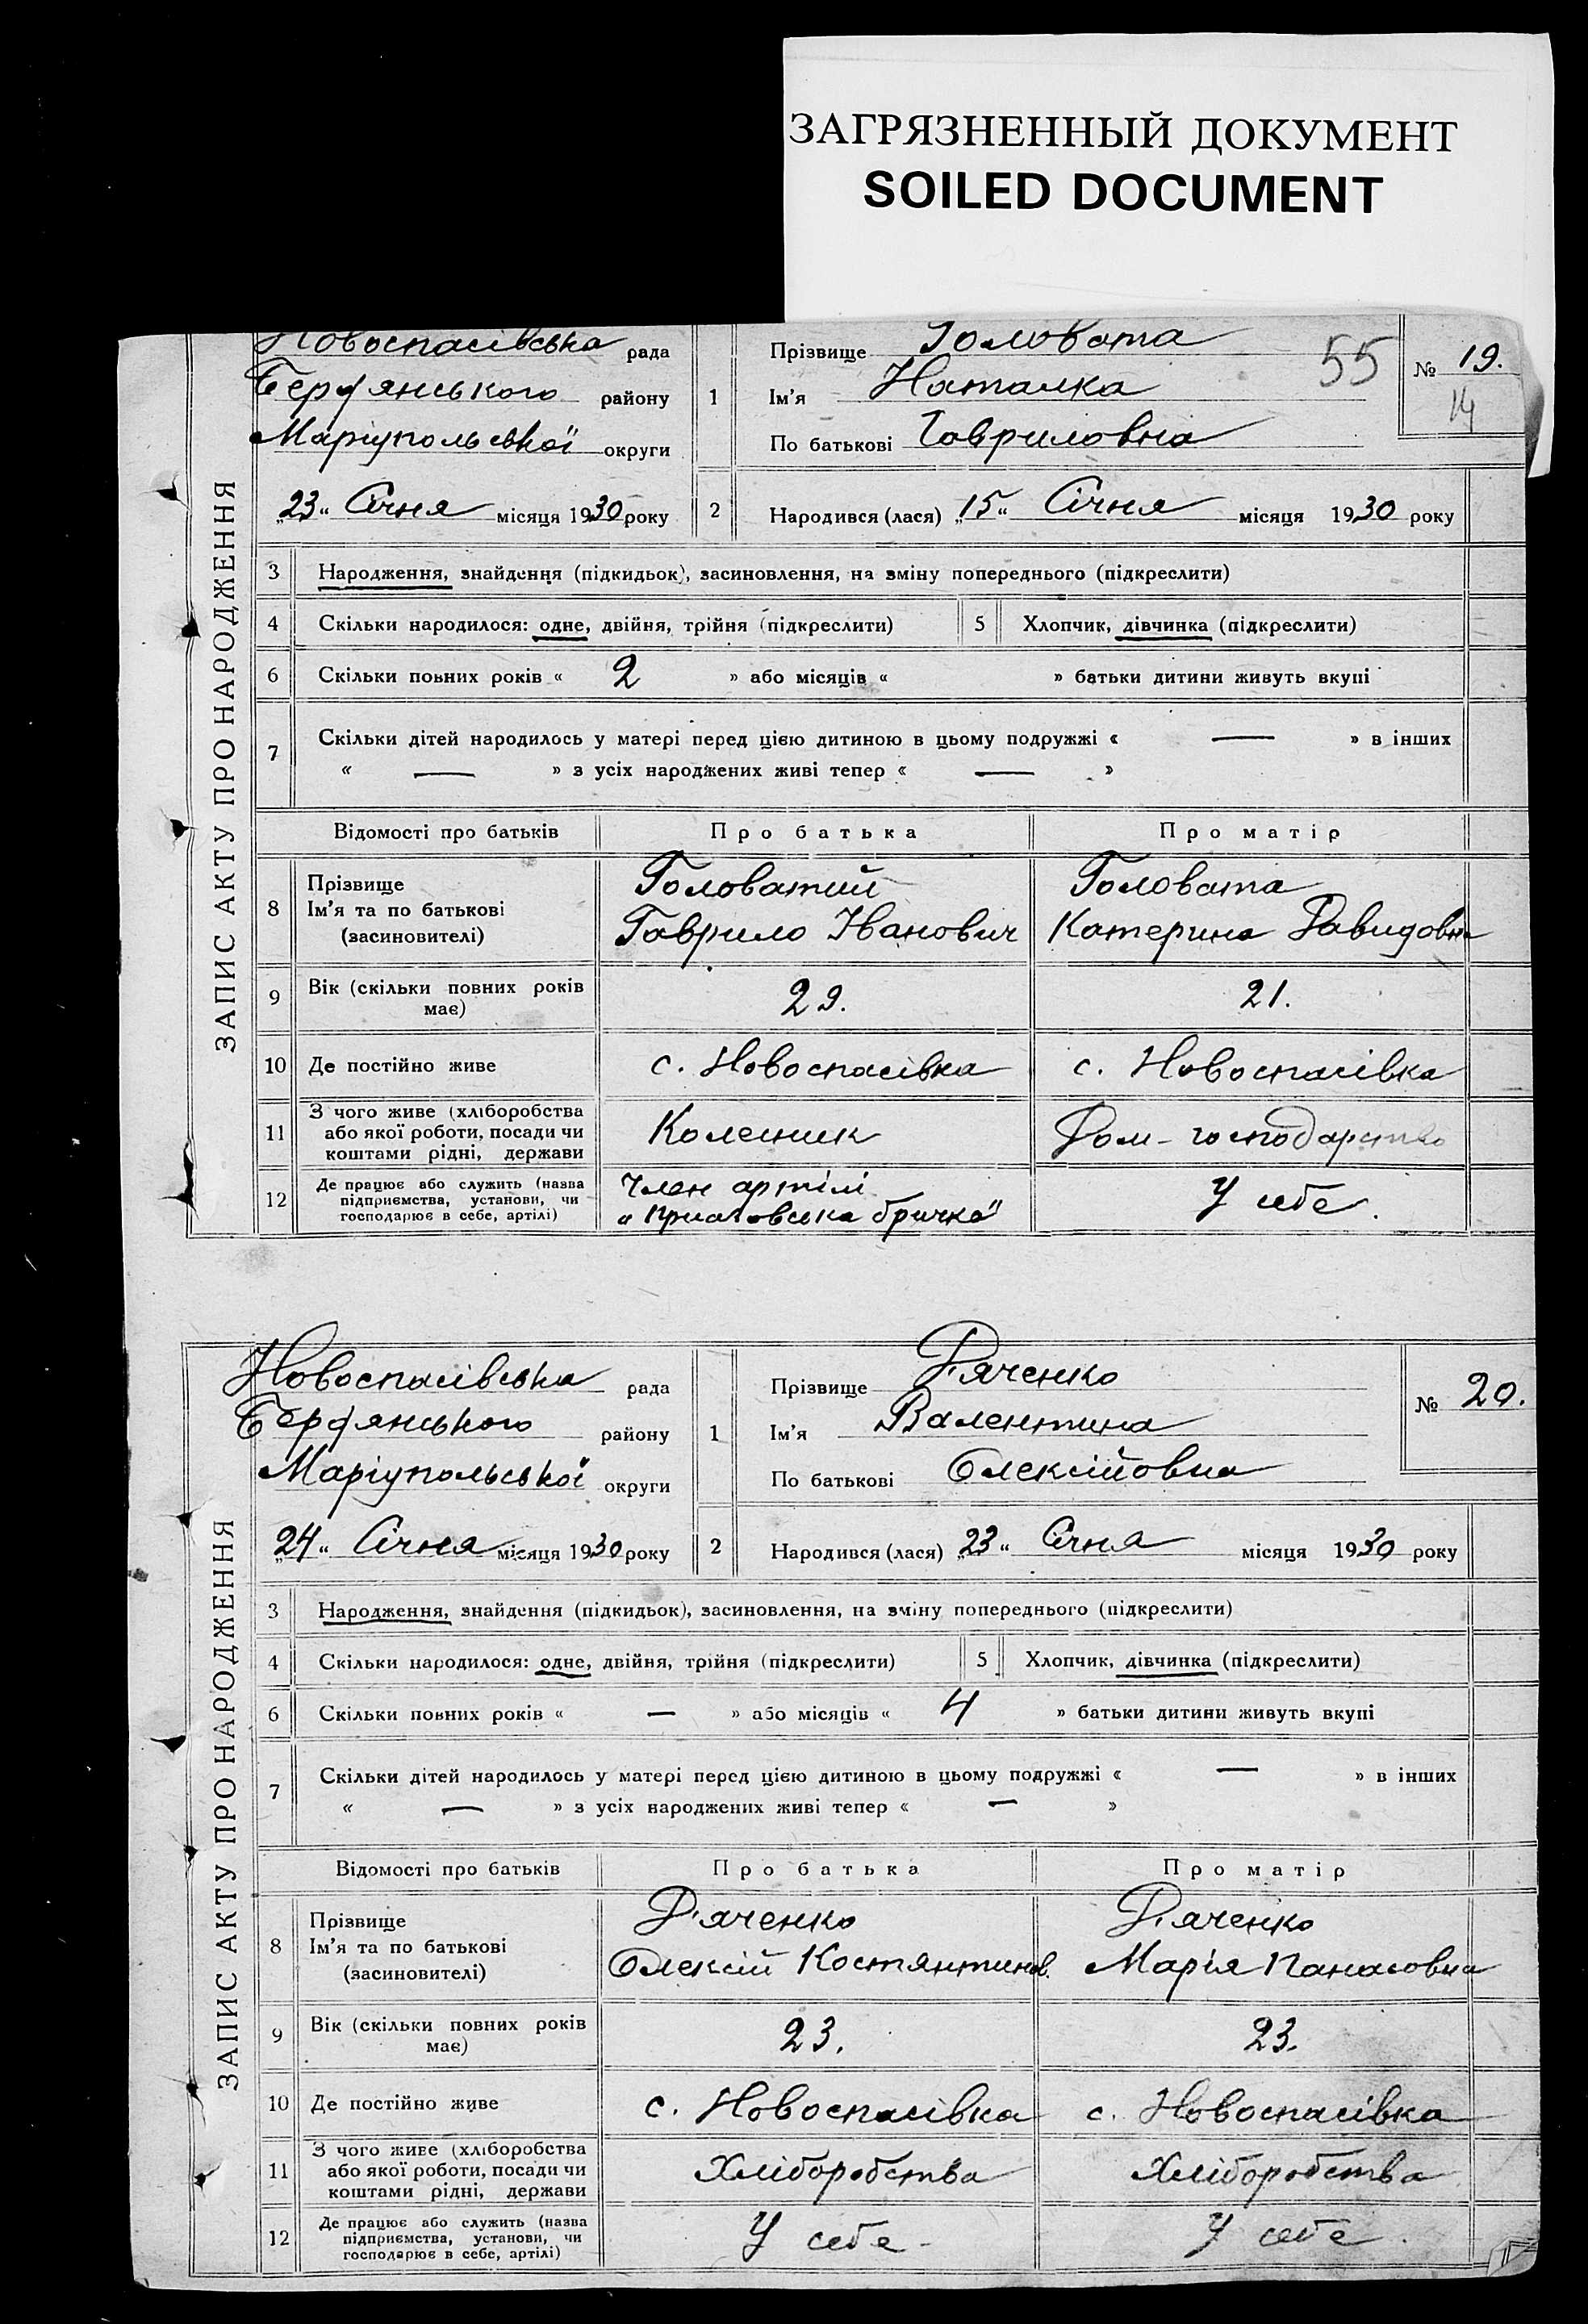 ЗАГРЯЗНЕННЫЙ ДОКУМЕНТ
SOILED DOCUMENT
ЗАПИС АКТУ ПРО НАРОДЖЕННЯ
Новоспасівська рада
Бердянського району
Маріупольської округи
„23“ Січня місяця 1930 року
1
Прізвище Головата
Ім'я Наталка
По батькові Гавриловна
55
№ 19.
14
2 Народився (лася) „15“ Січня місяця 1930 року
3 Народження, знайдення (підкидьок), засиновлення, на зміну попереднього (підкреслити)
4 Скільки народилося: одне, двійня, трійня (підкреслити) 5 Хлопчик, дівчинка (підкреслити)
6 Скільки повних років « 2 » або місяців « » батьки дитини живуть вкупі
7 Скільки дітей народилось у матері перед цією дитиною в цьому подружжі « — » в інших
« — » з усіх народжених живі тепер « — »
Відомості про батьків Про батька Про матір
8 Прізвище Ім'я та по батькові (засиновителі)
Головатий Головата
Гаврило Іванович Катерина Давидовна
9 Вік (скільки повних років має) 29. 21.
10 Де постійно живе с. Новоспасівка с. Новоспасівка
11 З чого живе (хліборобства
або якої роботи, посади чи
коштами рідні, держави
Колесник Дом-господарство
12 Де працює або служить (назва
підприємства, установи, чи
господарює в себе, артілі)
Член артілі
„Приазовська бричка“ У себе.
ЗАПИС АКТУ ПРО НАРОДЖЕННЯ
Новоспасівська рада
Бердянського району
Маріупольської округи
„24“ Січня місяця 1930 року
1
Прізвище Д'яченко
Ім'я Валентина
По батькові Олексійовна
№ 20.
2 Народився (лася) „23“ Січня місяця 1930 року
3 Народження, знайдення (підкидьок), засиновлення, на зміну попереднього (підкреслити)
4 Скільки народилося: одне, двійня, трійня (підкреслити) 5 Хлопчик, дівчинка (підкреслити)
6 Скільки повних років « — » або місяців « 4 » батьки дитини живуть вкупі
7 Скільки дітей народилось у матері перед цією дитиною в цьому подружжі « — » в інших
« — » з усіх народжених живі тепер « — »
Відомості про батьків Про батька Про матір
8 Прізвище Ім'я та по батькові (засиновителі)
Д'яченко Д'яченко
Олексій Костянтинов. Марія Панасовна
9 Вік (скільки повних років має) 23. 23.
10 Де постійно живе с. Новоспасівка с. Новоспасівка
11 З чого живе (хліборобства
або якої роботи, посади чи
коштами рідні, держави
Хліборобства Хліборобства
12 Де працює або служить (назва
підприємства, установи, чи
господарює в себе, артілі)
У себе У себе.